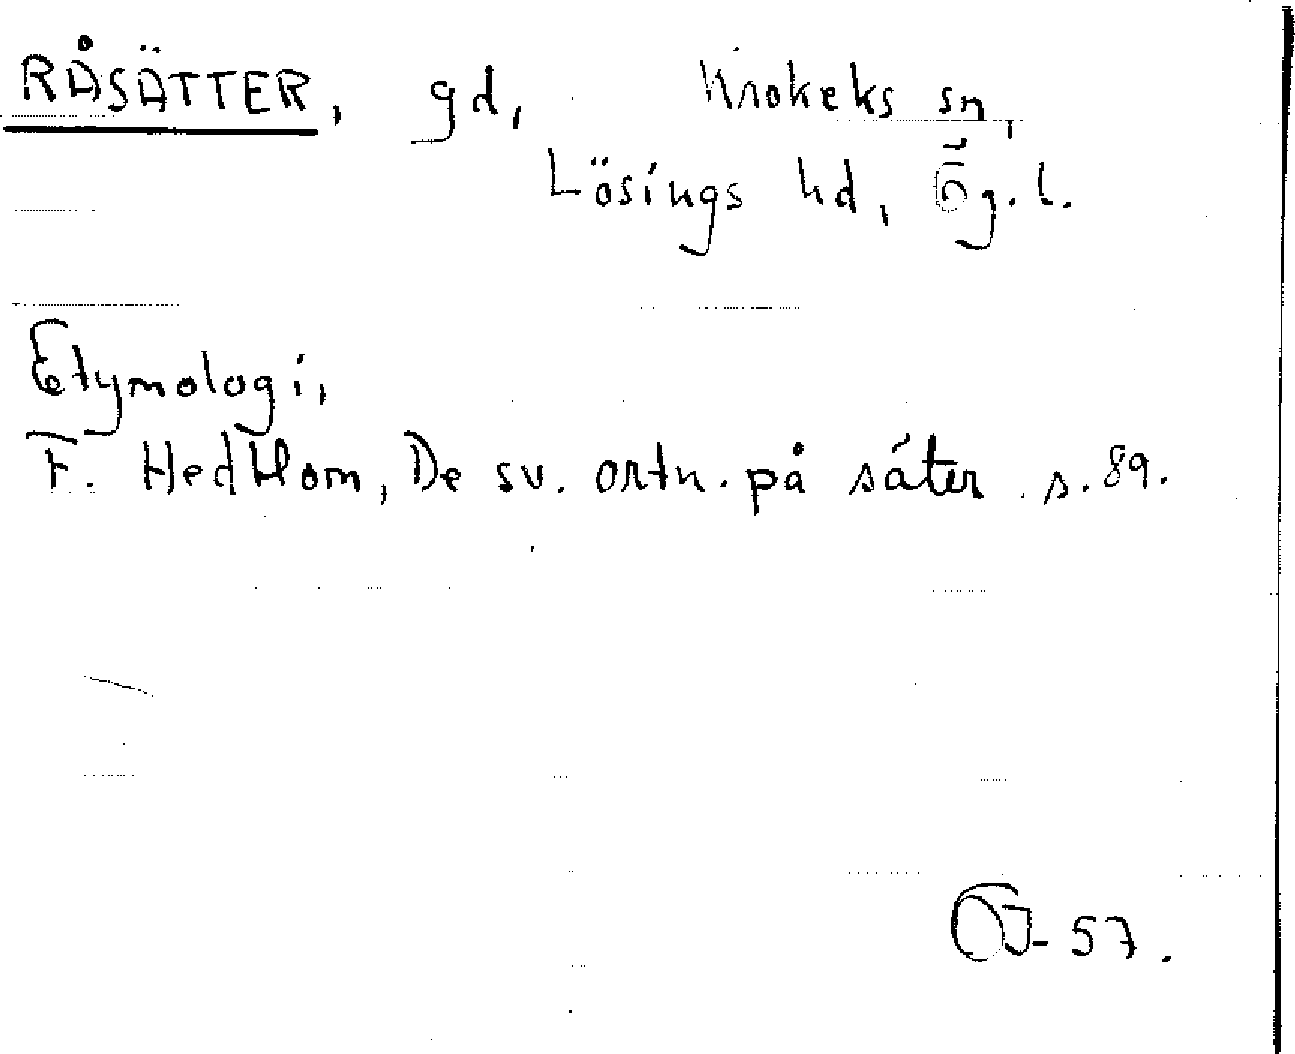 RÅSÄTTER, gd, Krokeks sn,
Lösings hd, Ög.l.
Etymologi,
F. Hedblom, De sv. ortn. på säter s. 89.
57.